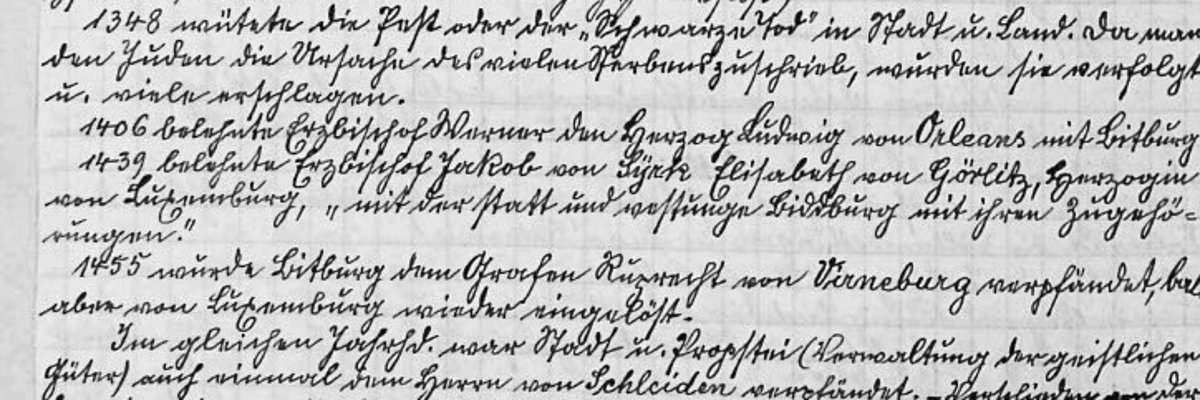 1348 wütete die Pest oder der „Schwarze Tod" in Stadt u. Land. Da man
den Juden die Ursache des vielen Sterbens zuschrieb, wurden sie verfolgt
u. viele erschlagen.
1406 belehnte Erzbischof Werner den Herzog Ludwig von Orleans mit Bitburg
1439 belehnte Erzbischof Jakob von Syrk Elisabeth von Görlitz, Herzogin
von Luxemburg, „mit der statt und vestunge Biddburg mit ihren Zugehö=
rungen."
1455 wurde Bitburg dem Grafen Ruprecht von Virneburg verpfändet,
aber von Luxemburg wieder eingelöst.
Im gleichen Jahrhd. war Stadt u. Propstei (Verwaltung der geistlichen
Güter) auch einmal dem Herrn von Schleiden verpfändet. -